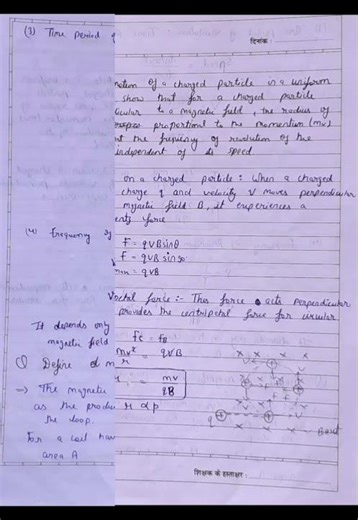 (3) Time period
दिनांक
motion of a charged particle in a uniform
show that for a charged particle
to a magnetic field, the radius of
proportional to the momentum (mv)
the frequency of revolution of the
independent of its speed
on a charged particle: When a charged
charge q and velocity v moves perpendicular
magnetic field B, it experiences a
force
(4) Frequency
F = qvB sinθ
F = qvB sin 90
= qvB
force :- This force acts perpendicular
provides the centripetal force for circular
It depends only
magnetic field
Fc = FB
= qvB
(1) Define
mv
qB
→ The magnetic
r α p
as the
the loop.
For a coil
area A
शिक्षक के हस्ताक्षर